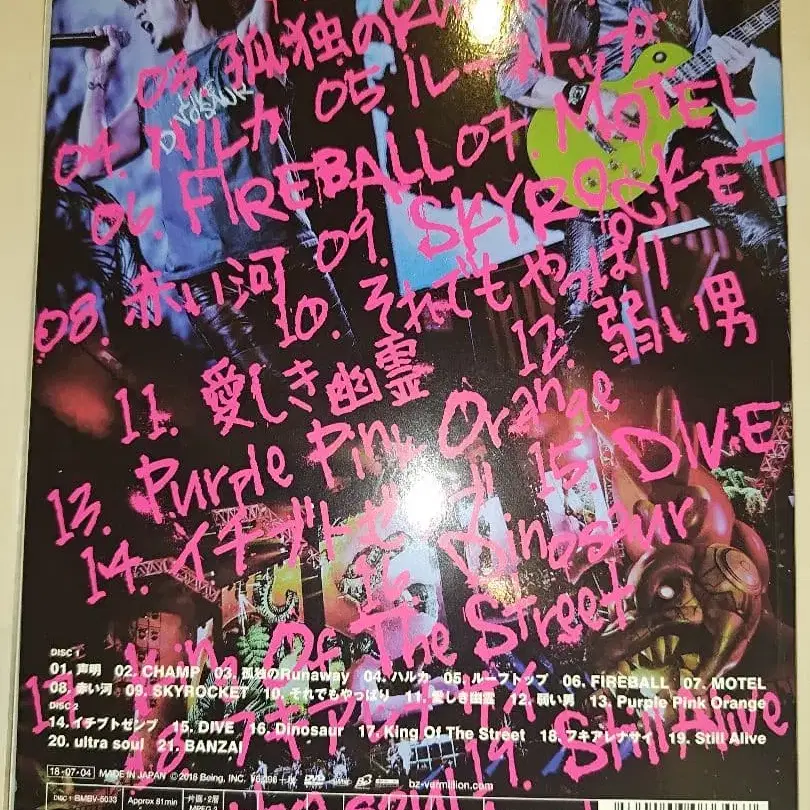 03. 孤独のRun
04. ハルカ 05. ルーフトップ
06. FIREBALL 07. MOTEL
08. 赤い河 09. SKYROCKET
10. それでもやっぱり
11. 愛しき幽霊 12. 弱い男
13. Purple Pink Orange
14. イチブトゼンブ 15. DIVE
16. Dinosaur
17. King Of The Street
18. フキアレナサイ 19. Still Alive
DINOSAUR
DISC 1
01. 声明 02. CHAMP 03. 孤独のRunaway 04. ハルカ 05. ルーフトップ 06. FIREBALL 07. MOTEL
08. 赤い河 09. SKYROCKET 10. それでもやっぱり 11. 愛しき幽霊 12. 弱い男 13. Purple Pink Orange
DISC 2
14. イチブトゼンブ 15. DIVE 16. Dinosaur 17. King Of The Street 18. フキアレナサイ 19. Still Alive
20. ultra soul 21. BANZAI
18・07・04 MADE IN JAPAN ©2018 Being, INC. DVD bz-vermillion.com
DISC 1 BMBV-5033 Approx 81min 片面・2層